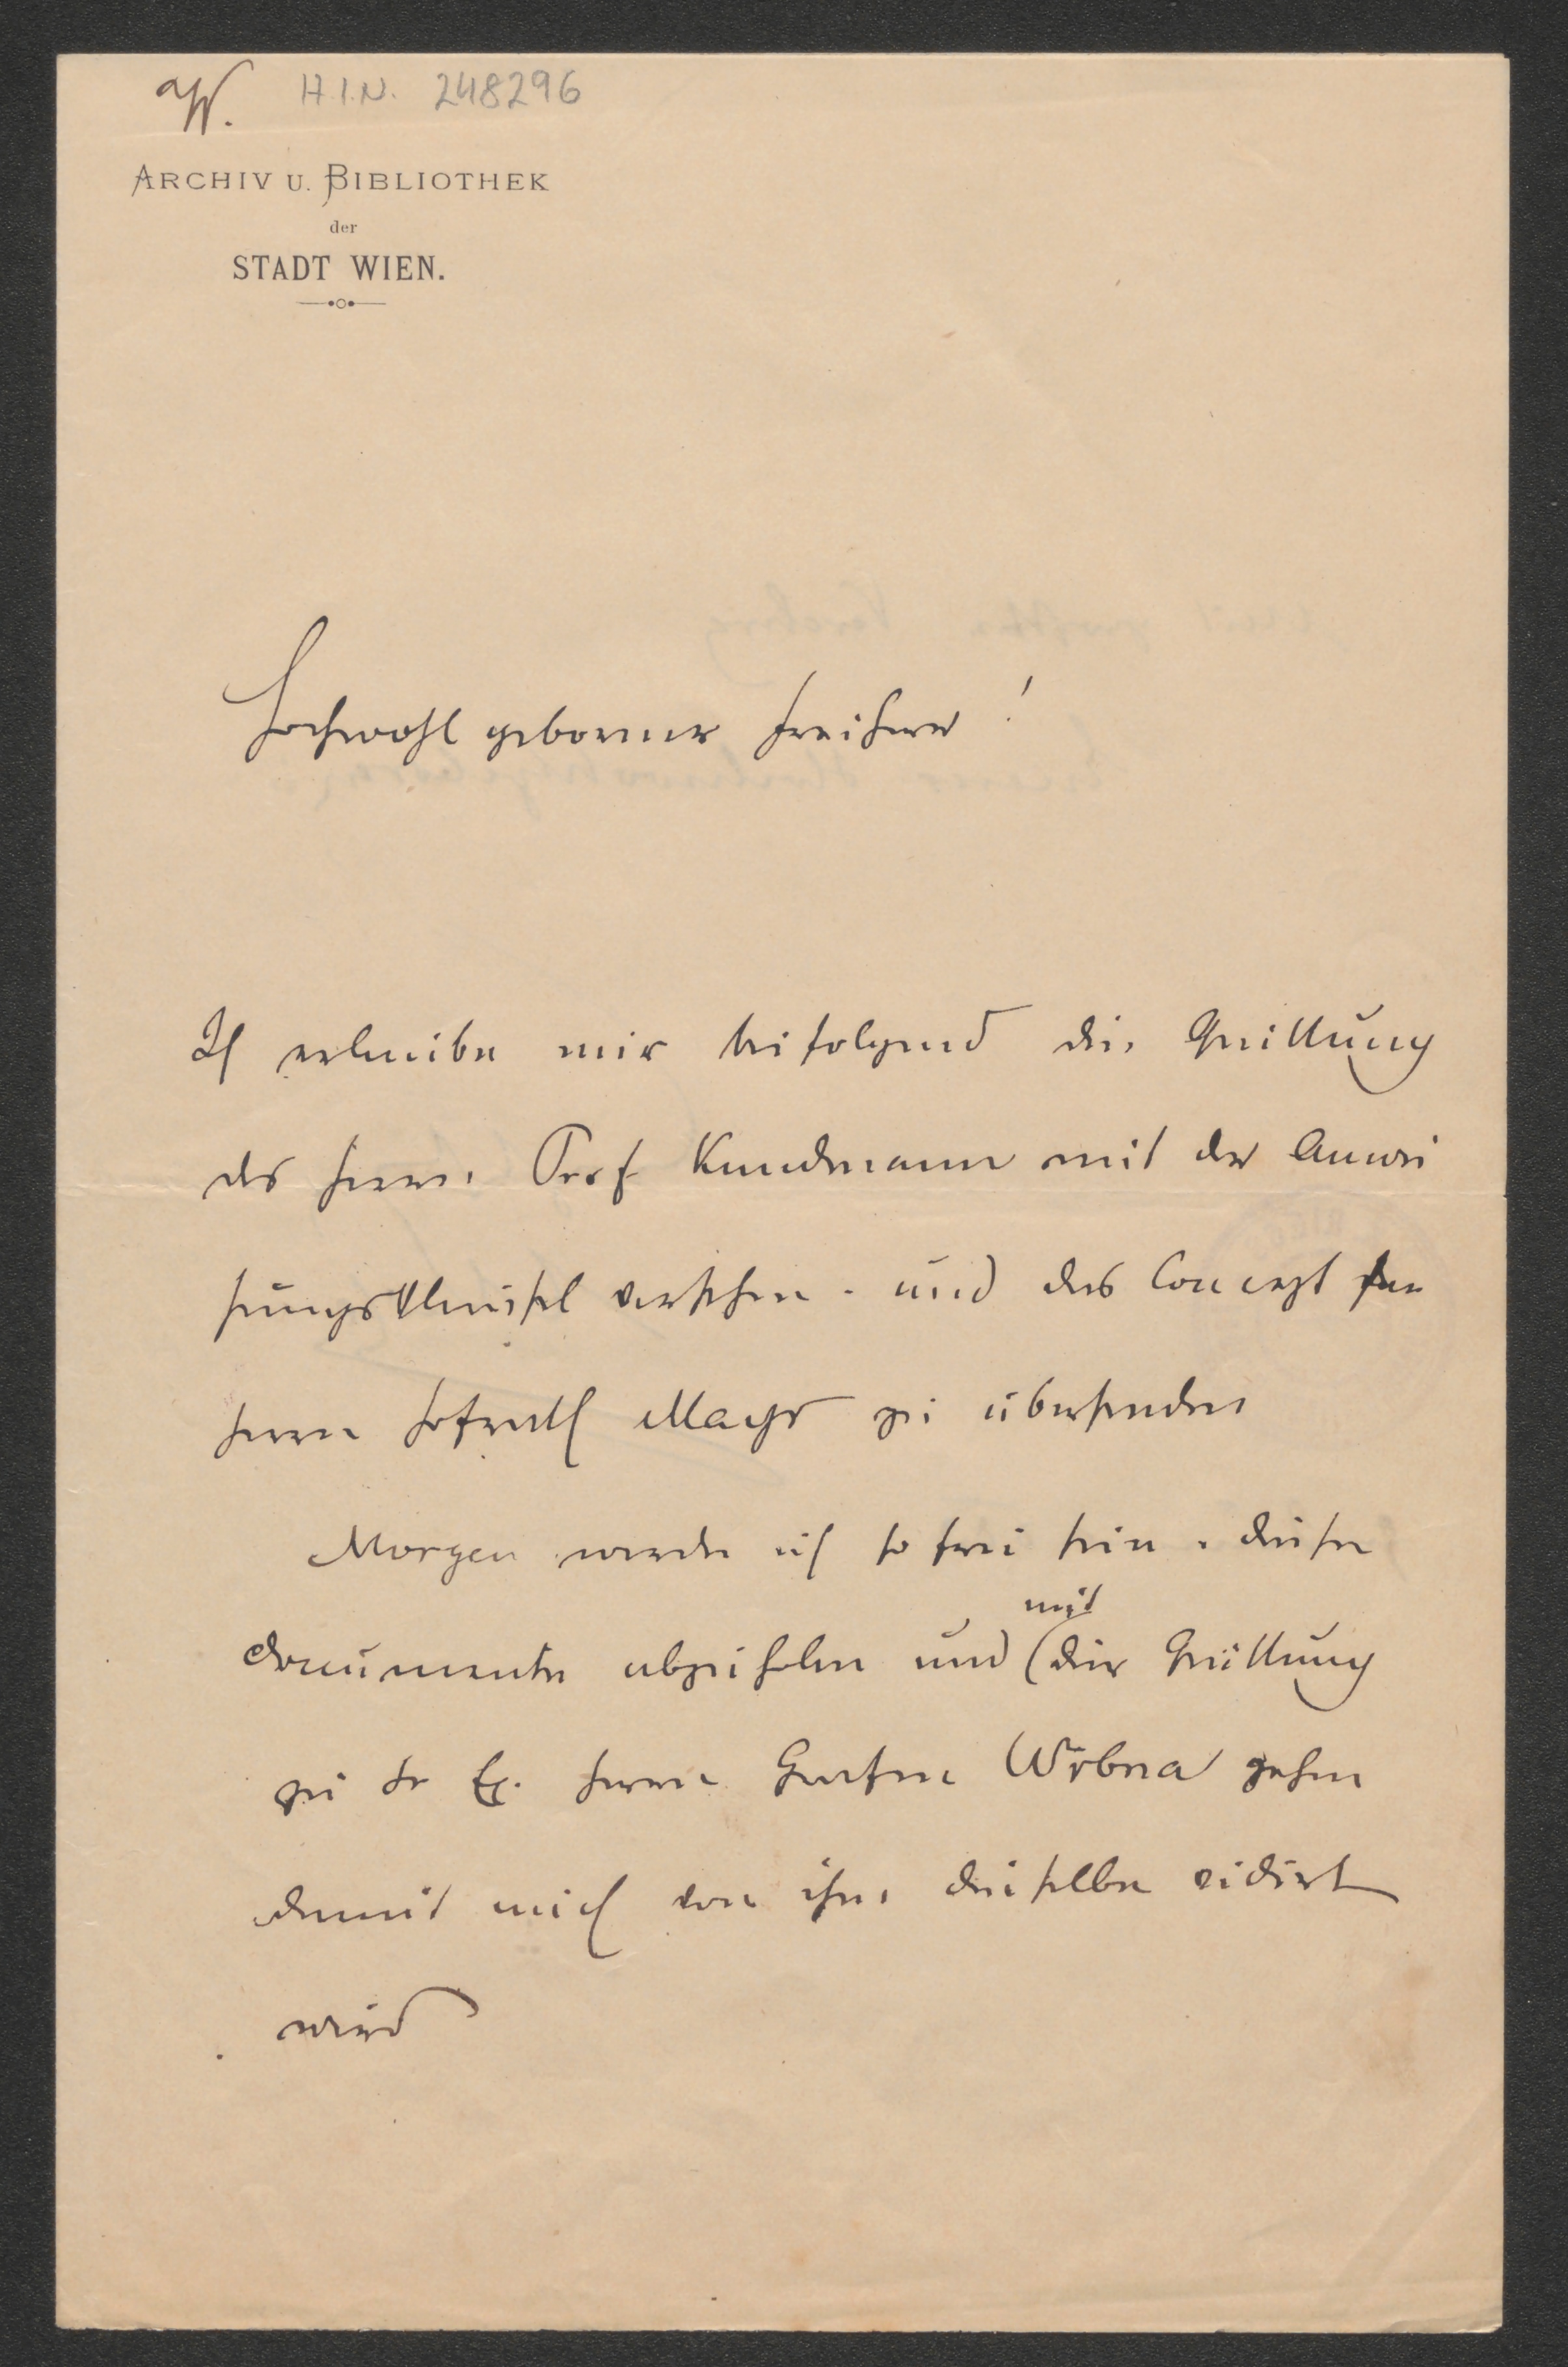 W. H.I.N. 248296
ARCHIV U. BIBLIOTHEK
der
STADT WIEN.
Hochwohlgeborner Freiherr!
Ich erlaube mir beifolgend die Quittung
des Herrn Prof Kundmann mit der Anwei
sungsklausel versehen. und das Concept an
Herrn Hofrath Mayr zu übersenden
Morgen werde ich so frei sein, diese
Documente abzuholen und
mit
(der Quittung
zu Sr Ex. Herrn Grafen Wrbna gehen
damit auch von ihm dieselbe vidirt
wird